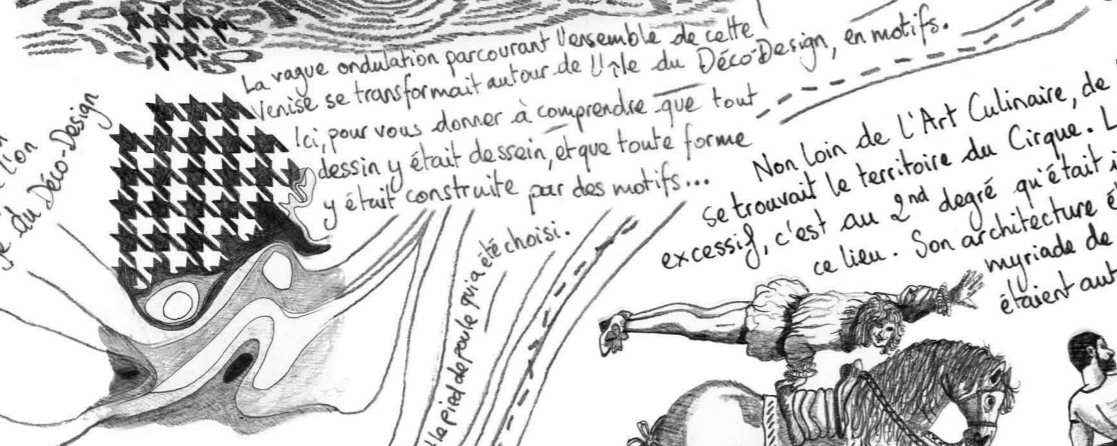 La vague ondulation parcourant l'ensemble de cette
Venise se transformait autour de l'île du Déco-Design, en motifs.
Ici, pour vous donner à comprendre que tout
dessin y était dessein, et que toute forme
y était construite par des motifs...
l'on
du Déco-Design
le pied de poule qui a été choisi.
Non loin de l'Art Culinaire, de
se trouvait le territoire du Cirque. L
excessif, c'est au 2nd degré qu'était
ce lieu. Son architecture é
myriade de
étaient aut